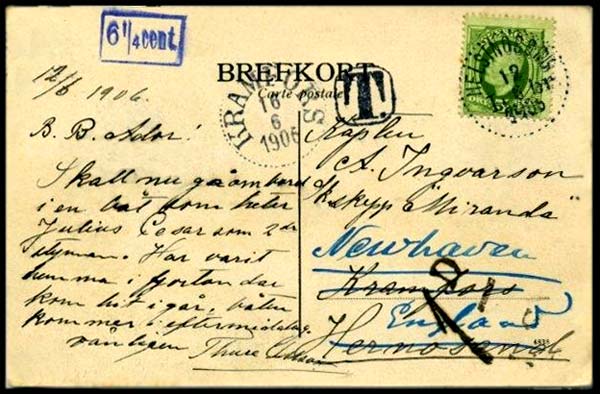 6 1/4 cent.
BREFKORT
Carte postale
T.
KRAMFORS
16
6
1906
HELSINGBORG
12
1906
12/6 1906.
B. B. Ador!
Skall nu gå ombord
i en båt som heter
Julius Cesar som 2dr
styrman. Har varit
hemma i fjorton dar
kom hit i går, båten
kommer i eftermiddag
vänligen
Thure
Kapten
A. Ingvarson
Skepp "Miranda"
Newhaven
Kramfors
England
Hernösand
4838